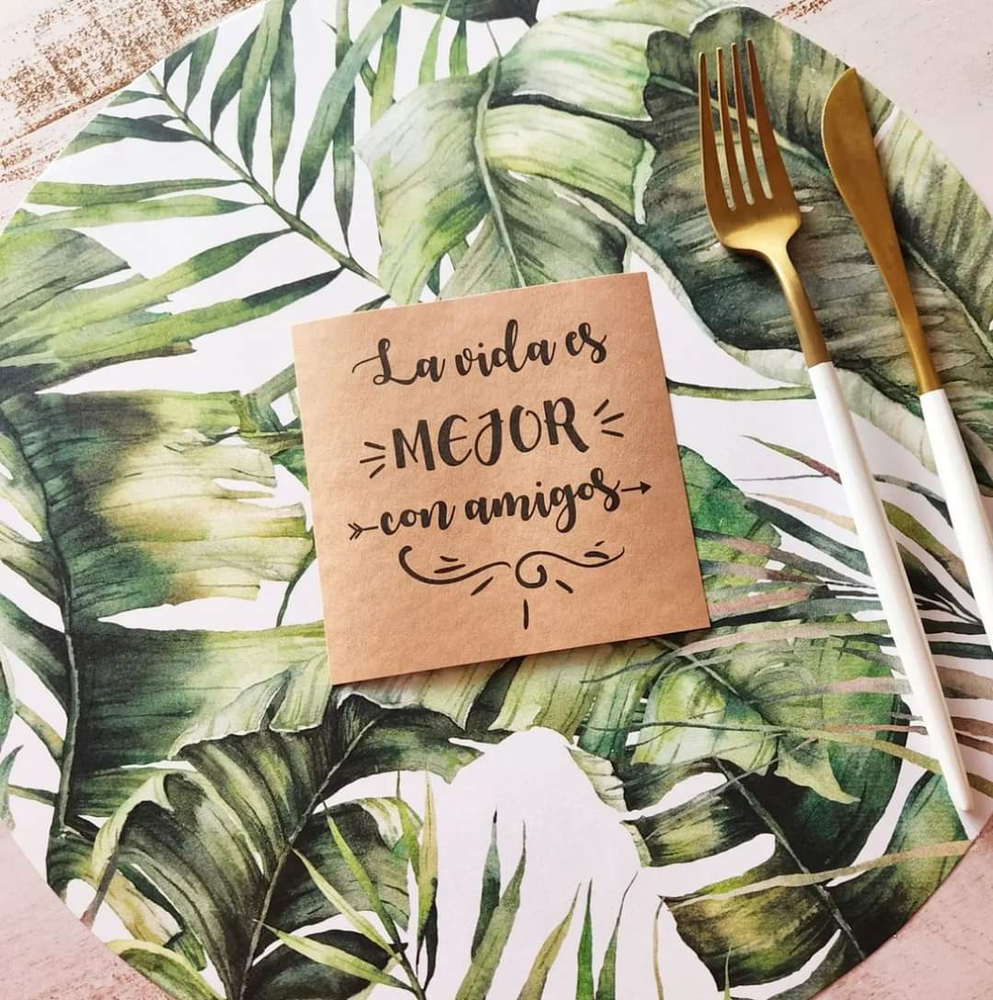 La vida es
MEJOR
con amigos